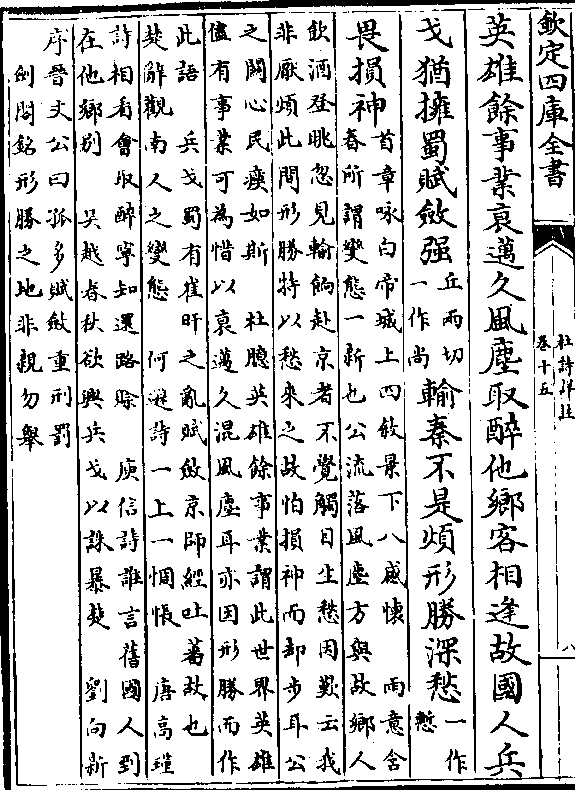 欽定四庫全書
杜詩詳註
卷十五
八
英雄餘事業衰邁久風塵取醉他鄉客相逢故國人兵
戈猶擁蜀賦斂强
丘兩切
一作尚
輸秦不是煩形勝深愁
一作
慙
畏損神
首章咏白帝城上四敘景下八感懷 兩意含
春所謂變態一新也公流落風塵方與故鄉人
飲酒登眺忽見輸餉赴京者不覺觸目生愁因歎云我
非厭煩此間形勝特以愁來之故怕損神而却步耳公
之關心民瘼如斯 杜臆英雄餘事業謂此世界英雄
儘有事業可為惜以衰邁久混風塵耳亦因形勝而作
此語 兵戈蜀有崔旰之亂賦斂京師經吐蕃故也
楚辭觀南人之變態 何遜詩一上一惆悵 唐高瑾
詩相看會取醉寧知還路賒 庾信詩誰言舊國人到
在他鄉別 吳越春秋欲興兵戈以誅暴楚 劉向新
序晉文公曰孤多賦斂重刑罰
劍閣銘形勝之地非親勿舉